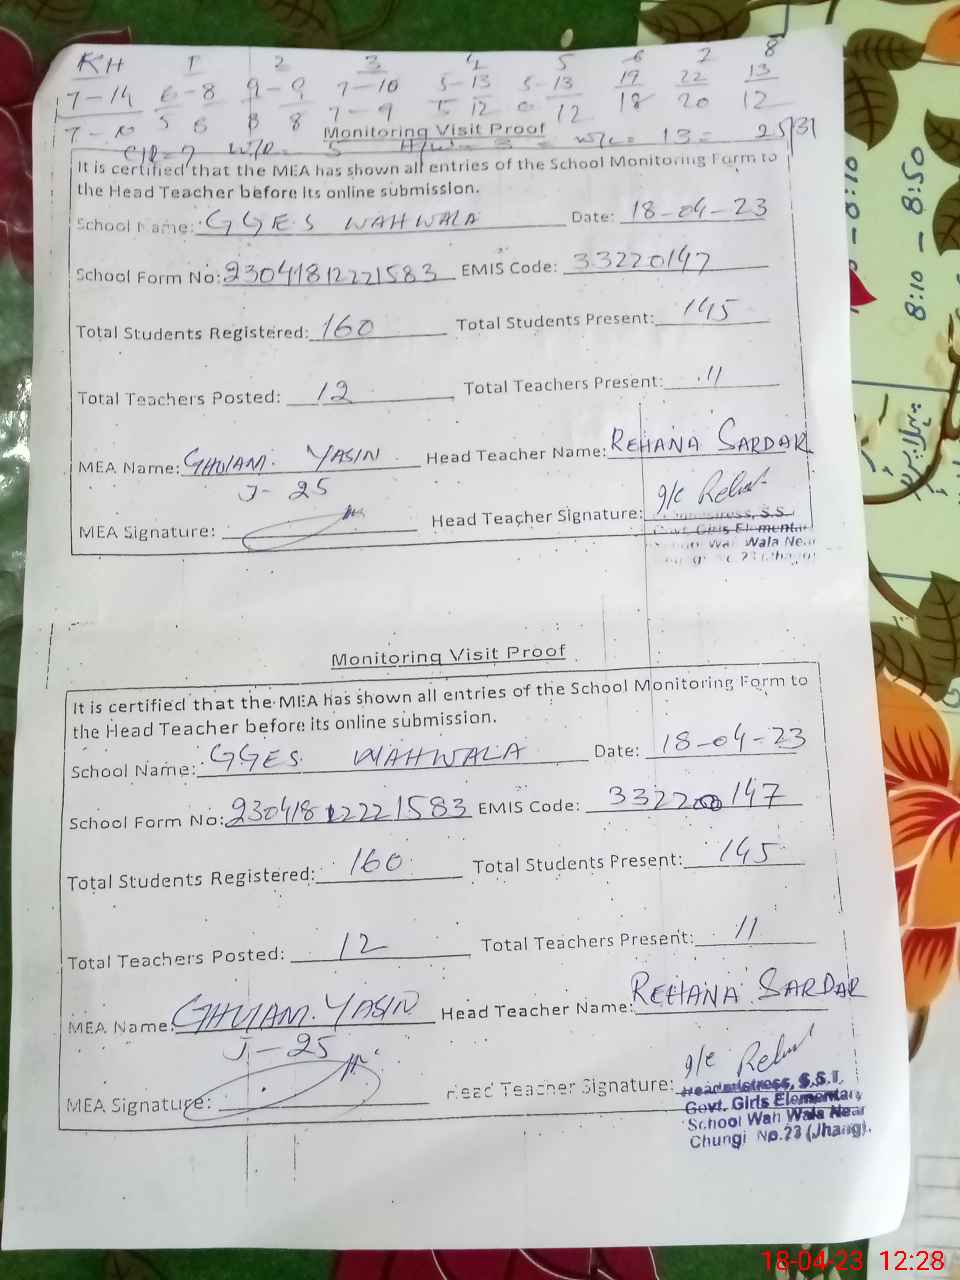 KH 1 2 3 4 5 6 7 8
7-14 6-8 9-9 7-10 5-13 5-13 19 22 13
7-10 5 6 8 8 7-9 5 12 12 18 20 12
Monitoring Visit Proof
5 13= 25/31
It is certified that the MEA has shown all entries of the School Monitoring Form to
the Head Teacher before its online submission.
School Name: GGES WAHWALA Date: 18-04-23
School Form No: 23041812221583 EMIS Code: 33220147
Total Students Registered: 160 Total Students Present: 145
Total Teachers Posted: 12 Total Teachers Present: 11
MEA Name: GHULAM. YASIN Head Teacher Name: REHANA SARDAR
J-25
MEA Signature: Head Teacher Signature: g/c
Headmistress, S.S.
Govt. Girls Elementar
Wah Wala Near
Monitoring Visit Proof
It is certified that the MEA has shown all entries of the School Monitoring Form to
the Head Teacher before its online submission.
School Name: GGES WAHWALA Date: 18-04-23
School Form No: 23041812221583 EMIS Code: 33220147
Total Students Registered: 160 Total Students Present: 145
Total Teachers Posted: 12 Total Teachers Present: 11
MEA Name: GHULAM. YASIN Head Teacher Name: REHANA SARDAR
J-25
MEA Signature: Head Teacher Signature: g/c
Headmistress, S.S.T,
Govt. Girls Elementary
School Wah Wala Near
Chungi No.23 (Jhang).
8:10
8:10 - 8:50
18-04-23 12:28